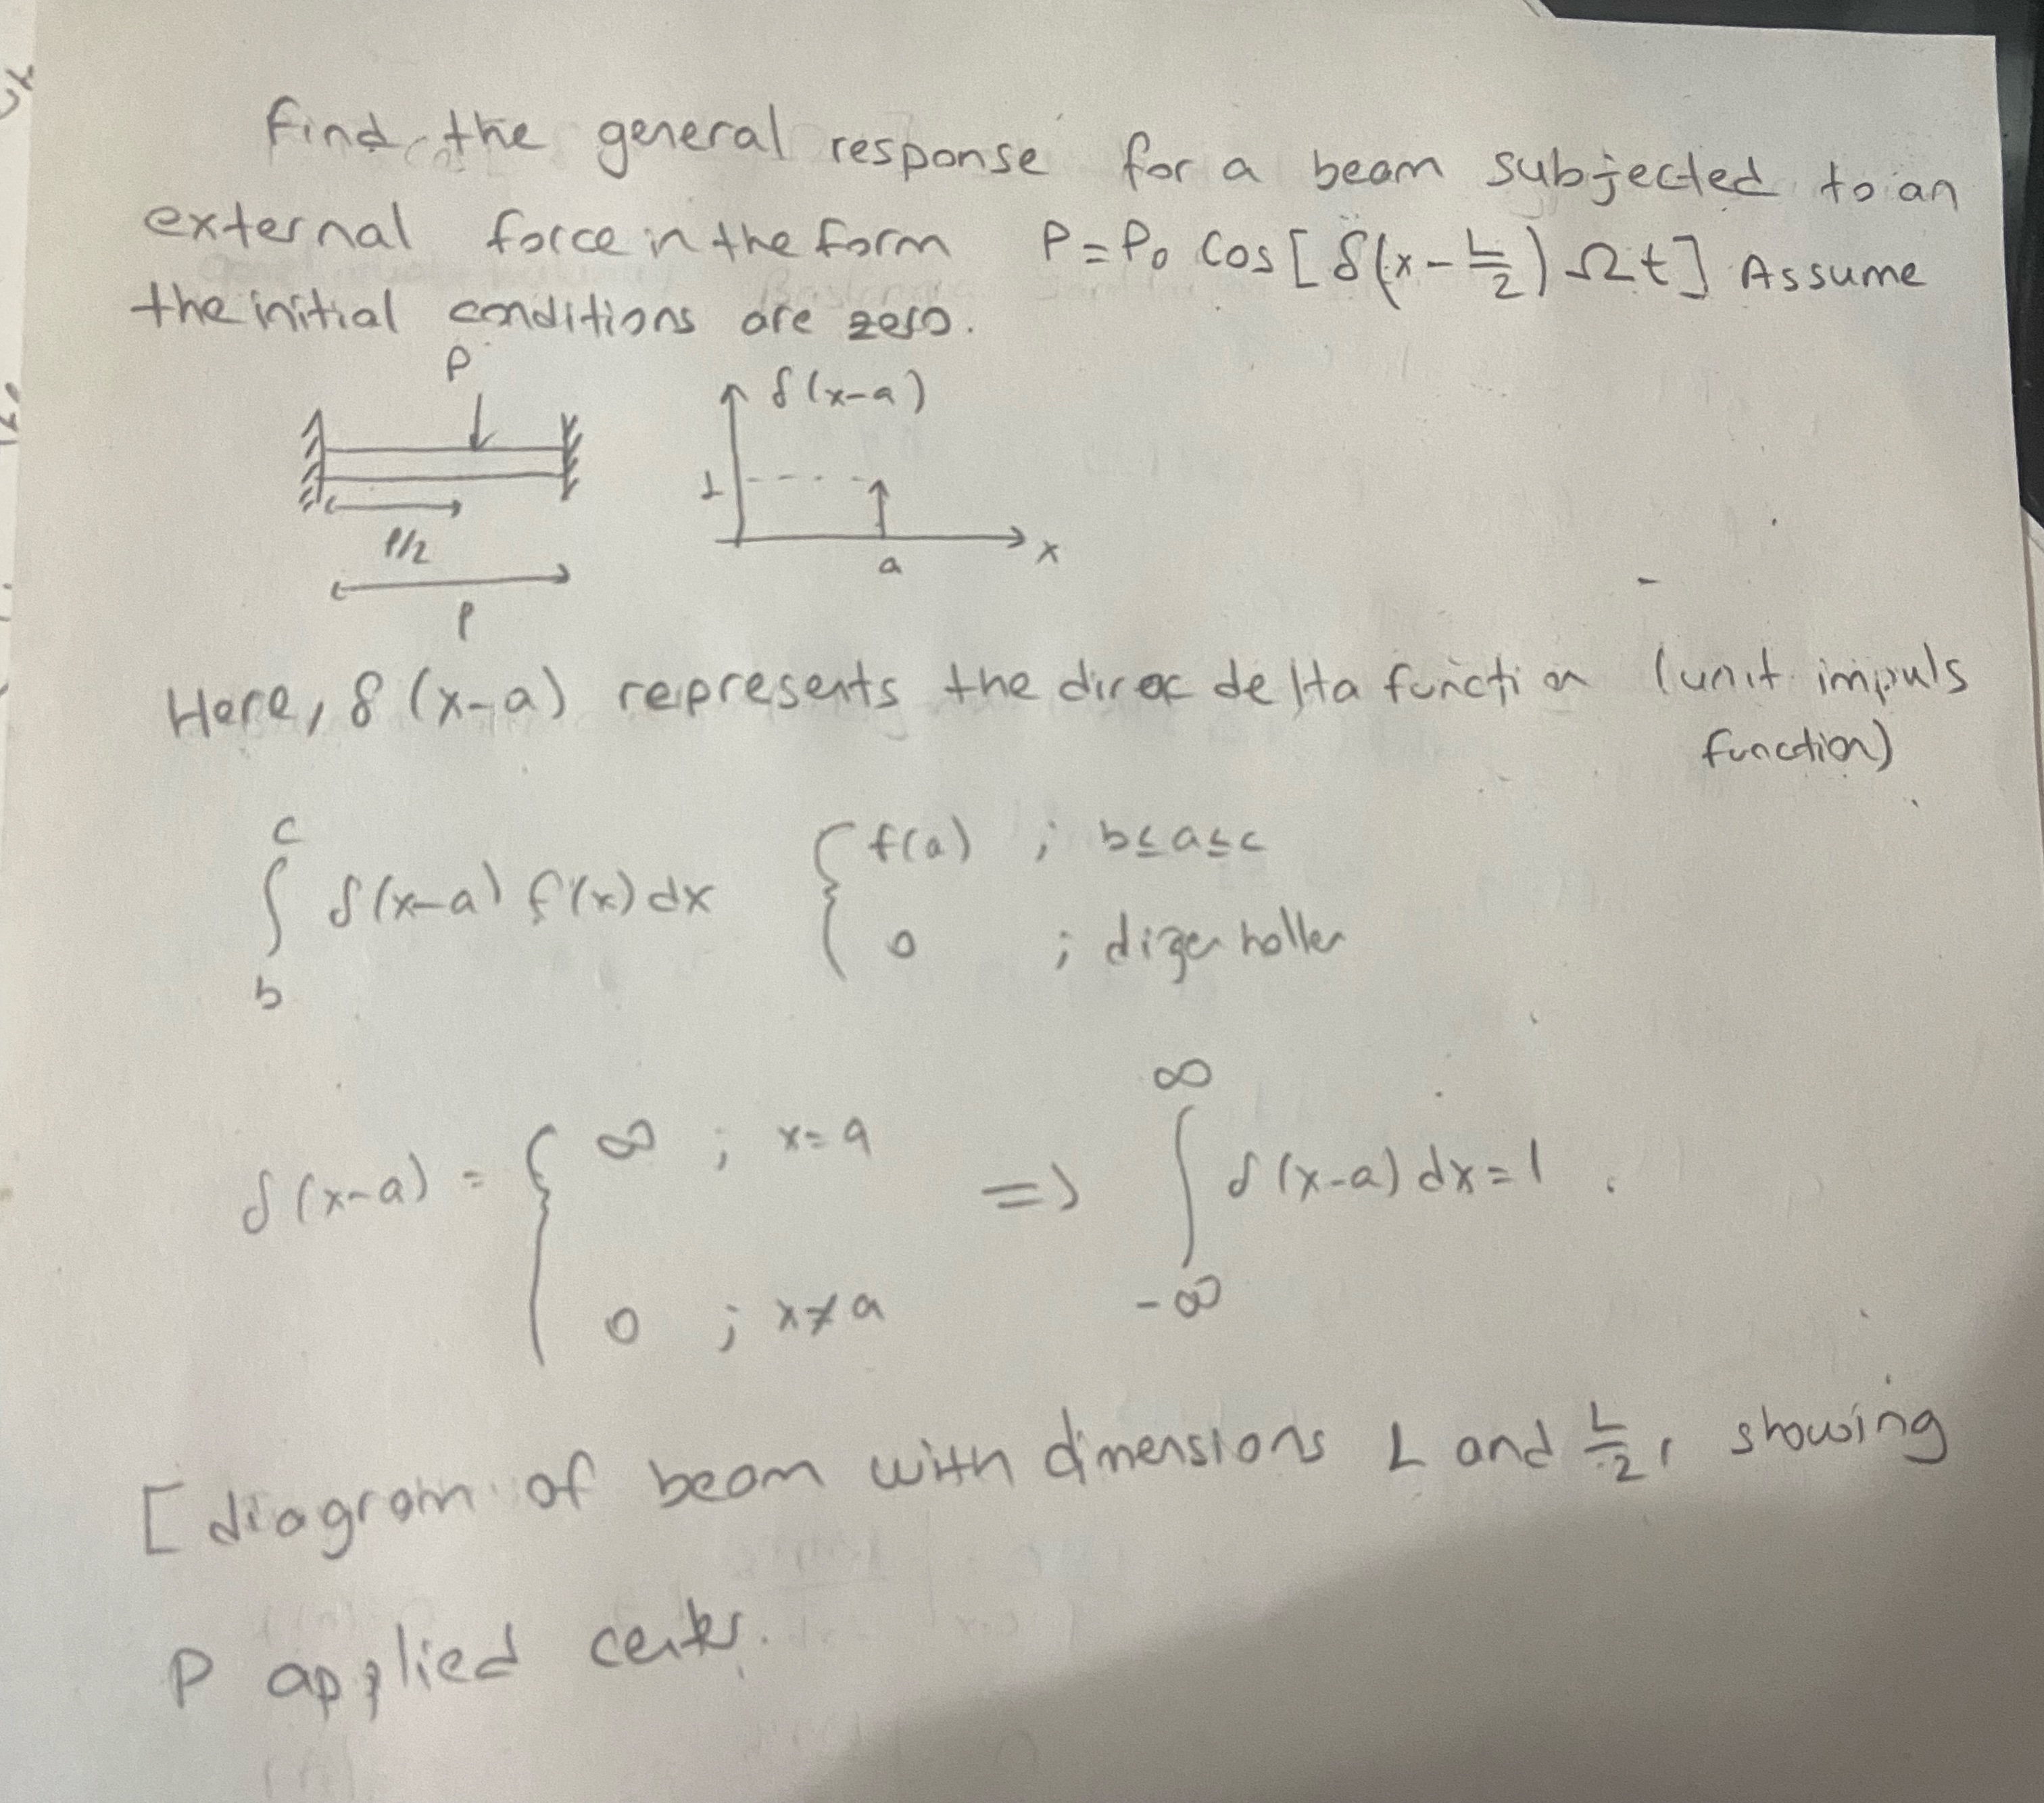 Find the general response for a beam subjected to an
external force in the form P = P₀ Cos [δ(x - L/2) Ωt] Assume
the initial conditions are zero.
P
δ(x-a)
1
l/2
a
x
l
Here, δ(x-a) represents the dirac delta function (unit impuls
function)
∫_b^c δ(x-a) f(x) dx { f(a) ; b≤a≤c
0 ; diğer haller
δ(x-a) = { ∞ ; x=a
0 ; x≠a
=> ∫_{-∞}^{∞} δ(x-a) dx = 1 .
[diagram of beam with dimensions L and L/2, showing
P applied